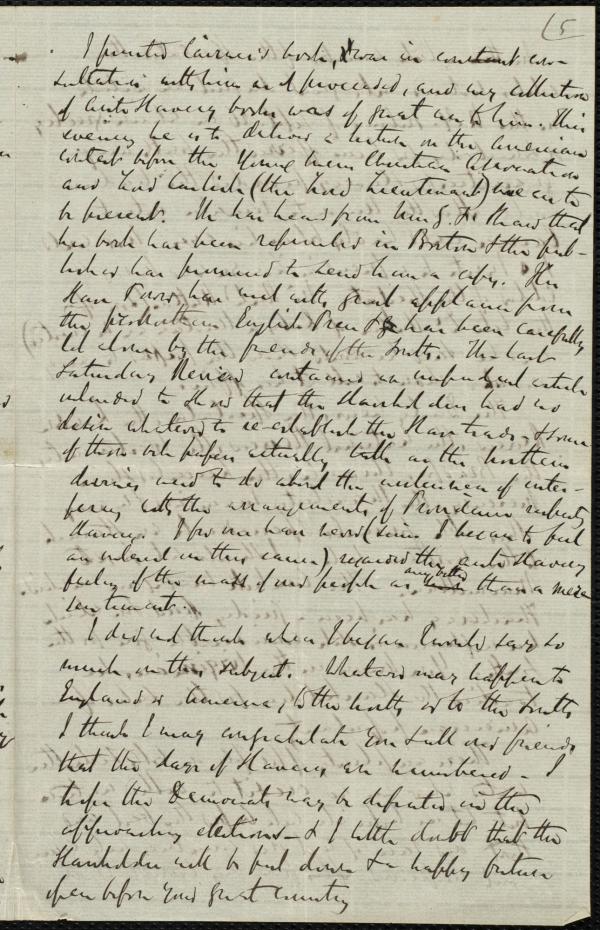 (5
I printed Cairnes's book, & was in constant con-
sultation with him as it proceeded, and my collection
of Anti Slavery books was of great use to him. This
evening he is to deliver a lecture on the American
contest before the Young Men's Christian Association
and Lord Carlisle (the Lord Lieutenant) is to
be present. He has heard from Mrs G. F. Shaw that
his book has been reprinted in Boston & the pub-
lisher has promised to send him a copy. The
Slave Power has met with great applause from
the pro Northern English Press & has been carefully
let alone by the friends of the South. The last
Saturday Review contained an impudent article
intended to show that the Slaveholders had no
desire whatever to re-establish the Slave trade - & some
of these vile papers actually talk as the Northern
divines used to do about the wickedness of inter-
fering with the arrangements of Providence respecting
Slavery. I for one have never (since I began to feel
an interest in this cause) regarded the anti Slavery
feeling of the mass of our people as any better than a mere
sentiment.
I did not think when I began I would say so
much on this subject. Whatever may happen to
England or America, to the North or to the South
I think I may congratulate you & all our friends
that the days of Slavery are numbered - I
hope the Democrats may be defeated in the
approaching elections - & I little doubt that the
Slaveholders will be put down & a happy future
open before your great country